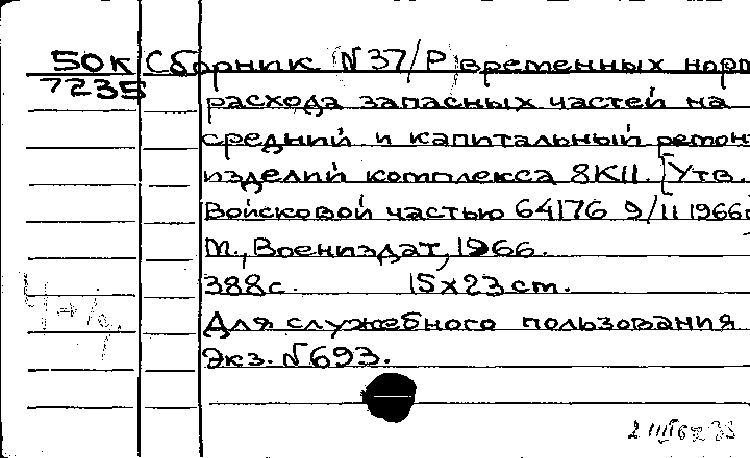 50К Сборник N37/Р временных норм
7235
расхода запасных частей на
средний и капитальный ремон
изделий комплекса 8К11. [Утв.
Войсковой частью 64176 9/II 1966г
М., Воениздат, 1966.
388с. 15х23 cm.
Для служебного пользования
Экз. N693.